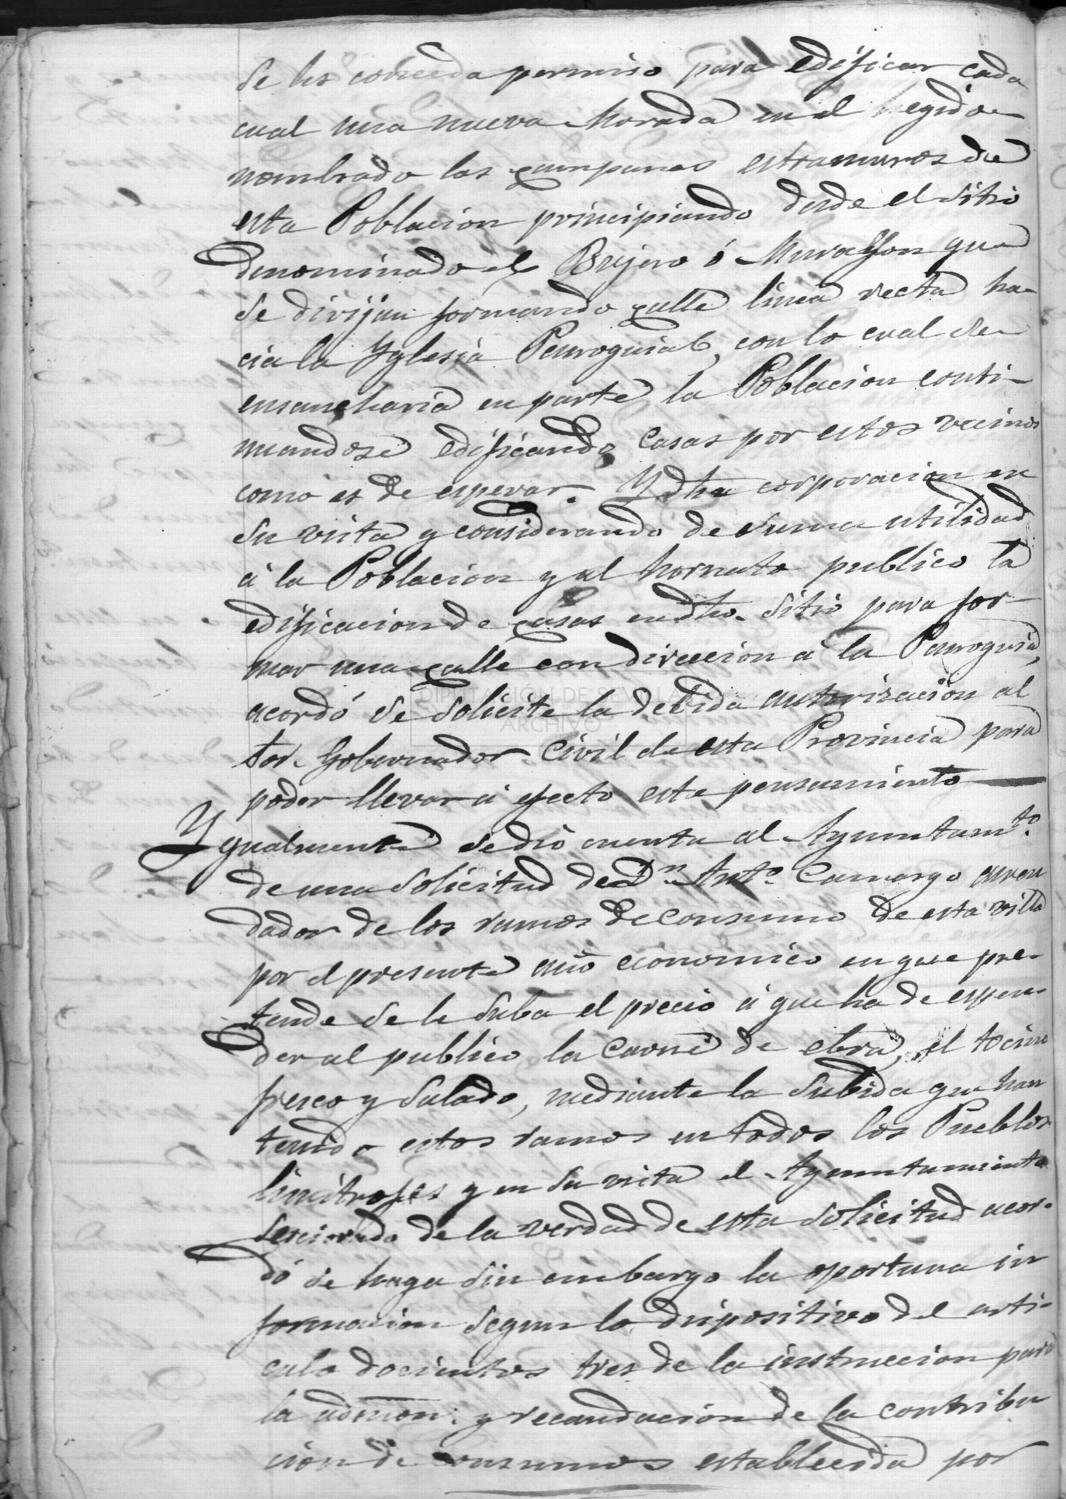 se les conceda permiso para edificar cada
cual una nueva morada en el hegido
nombrado las campanas extramuros de
esta Poblacion principiando desde el sitio
denominado el Brujero ó que
se dirijan formando calle linea recta ha-
cia la Yglesia Parroquial, con lo cual se
ensancharia en parte la Poblacion conti-
nuandose edificando casas por estos vecinos
como es de esperar. Y dha corporacion en
su vista y considerando de suma utilidad
á la Poblacion y al hornato publico la
edificacion de casas en dho. sitio para for-
mar una calle con direccion á la Parroquia,
acordó se solicite la debida autorizacion al
Sor. Gobernador Civil de esta Provincia para
poder llevar á efecto este pensamiento
Ygualmente se dió cuenta al Ayuntamto.
de una solicitud de Dn. Anto. Camargo arren
dador de los ramos de consumo de esta villa
por el presente año economico en que pre-
tende se le suba el precio á que ha de espen-
der al publico la carne de ebra, el tocino
fresco y salado, mediante la subida que han
tenido estos ramos en todos los Pueblos
limitrofes y en su vista el Ayuntamiento
serciorado de la verdad de esta solicitud acor-
dó se haga sin embargo la oportuna in
formacion segun lo dispositivo del arti-
culo docientos tres de la instruccion para
la admon. y recaudacion de la contribu
cion de consumos establecida por
DIPUTACION DE SEVILLA
ARCHIVO